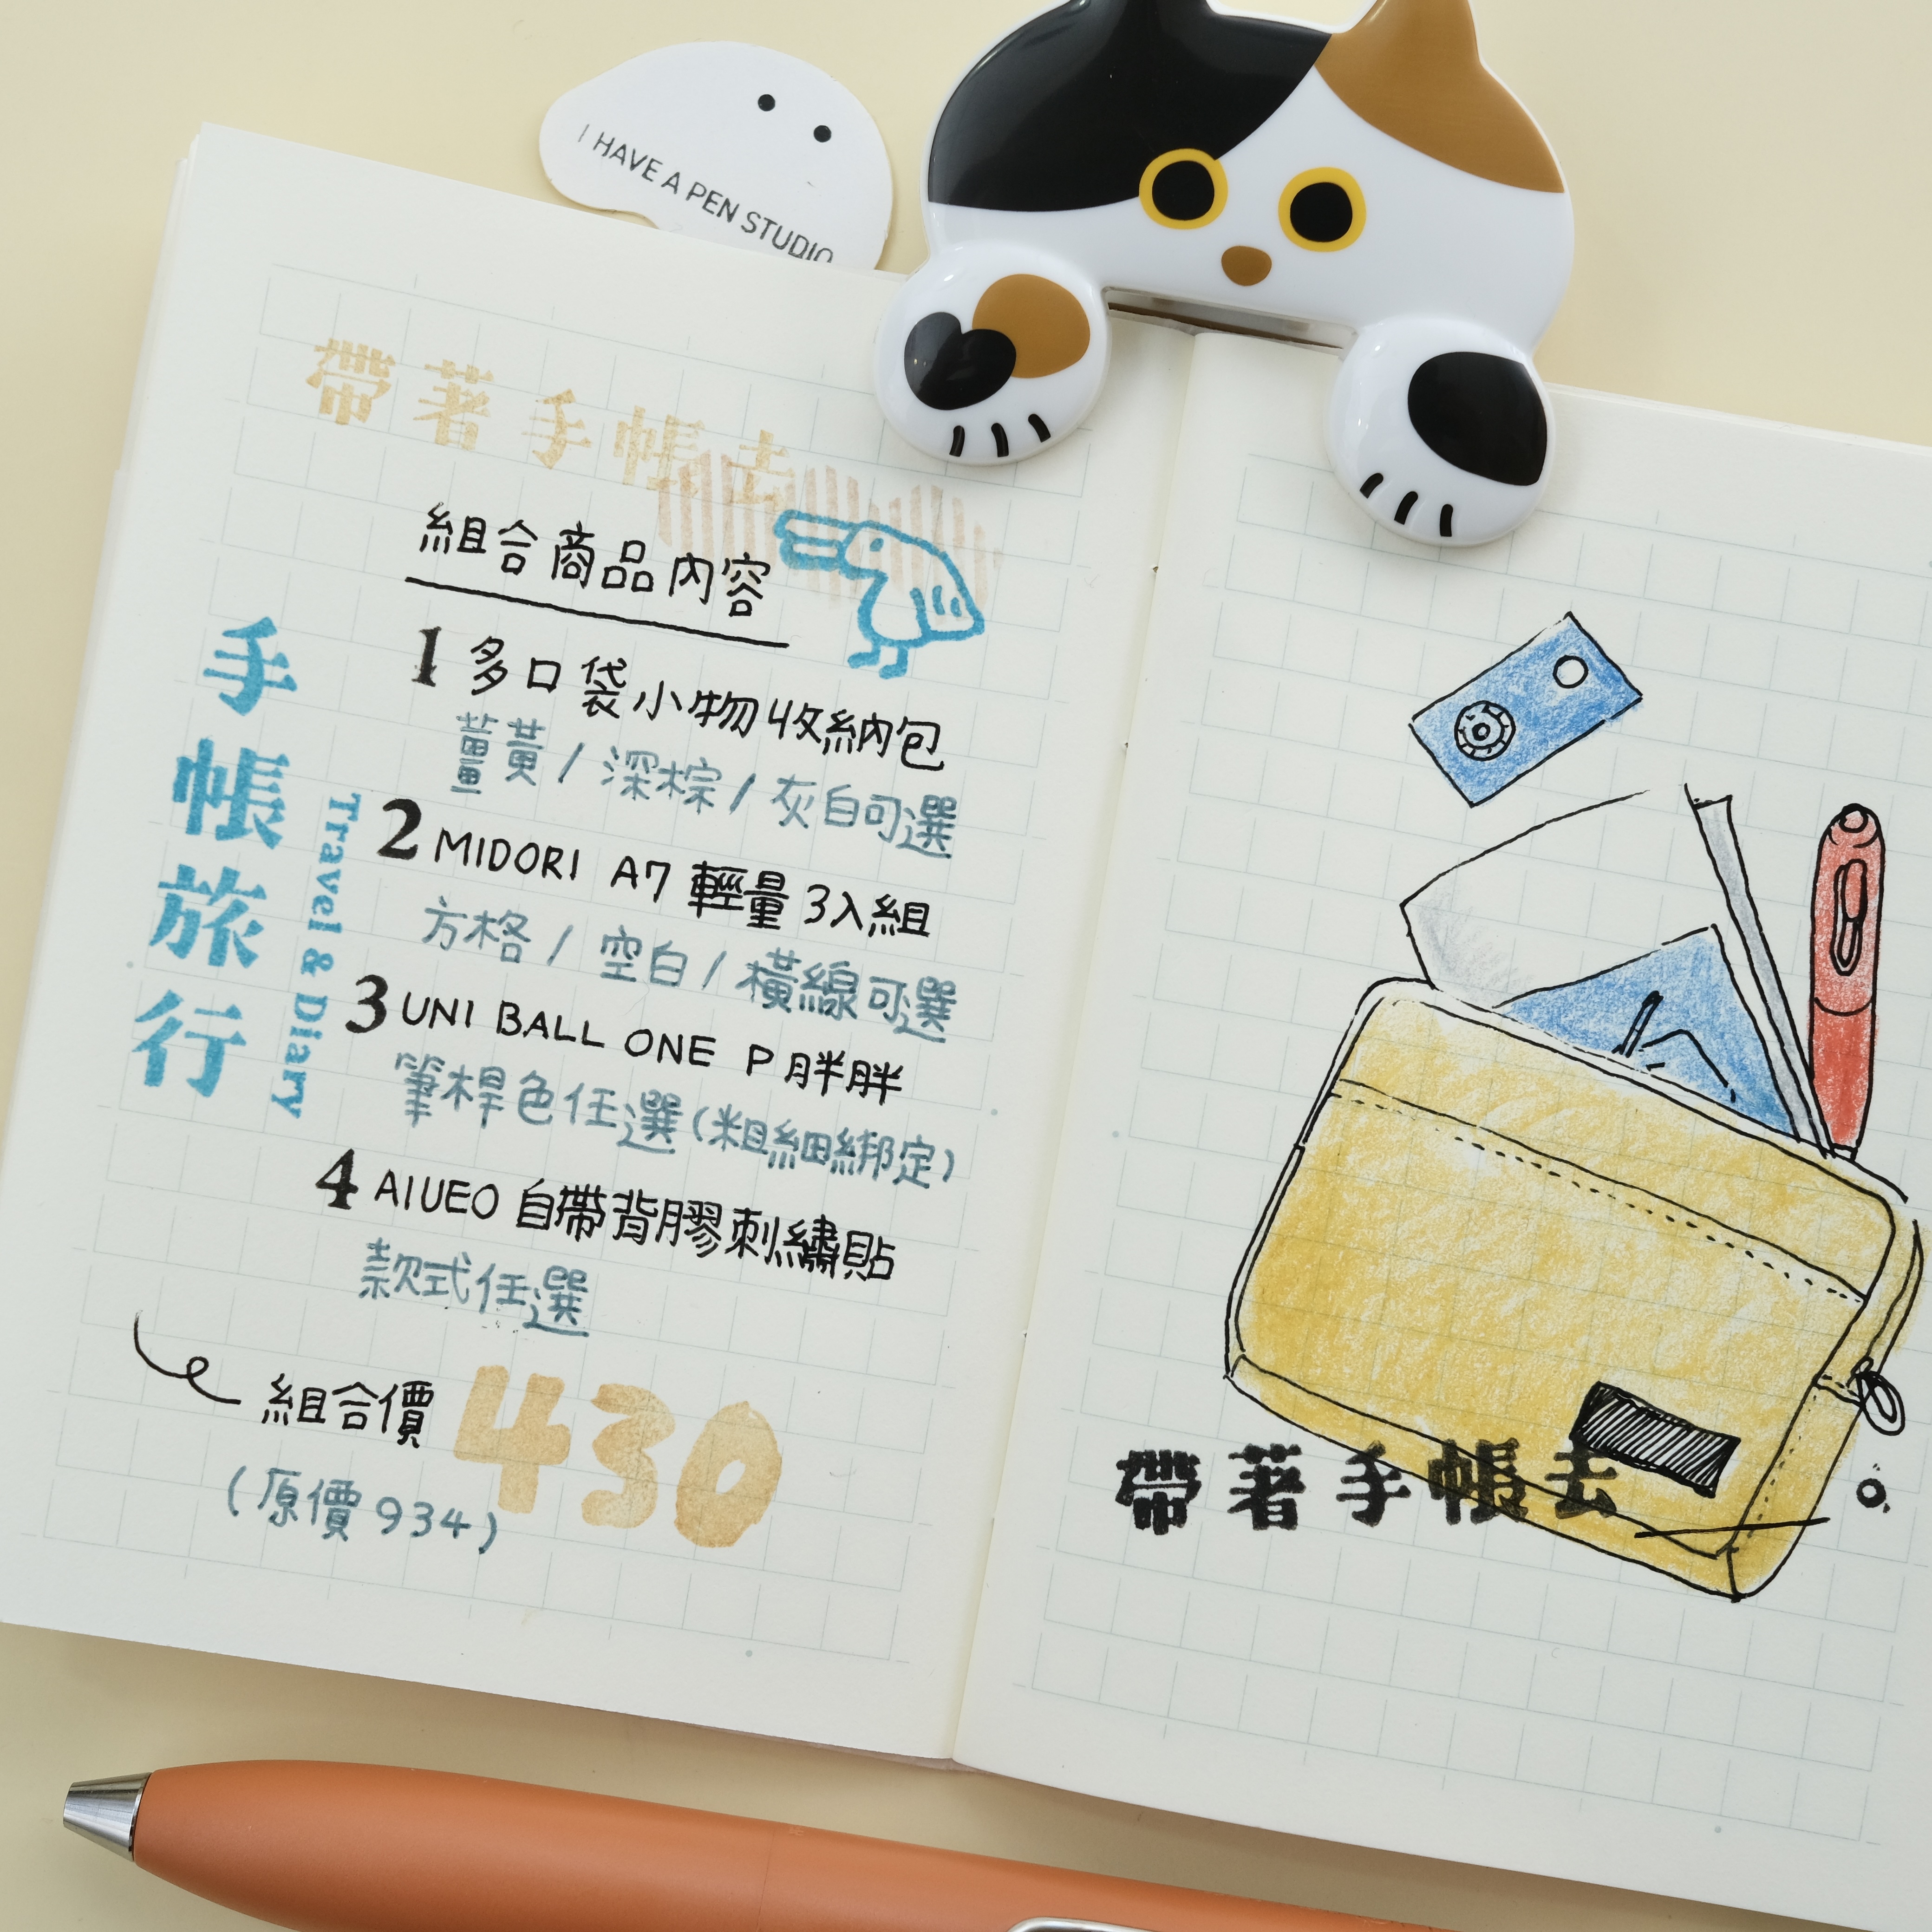 I HAVE A PEN STUDIO
帶著手帳去
組合商品內容
1 多口袋小物收納包
薑黃/深棕/灰白可選
2 MIDORI A7 輕量3入組
方格/空白/橫線可選
3 UNI BALL ONE P 胖胖
筆桿色任選(粗細綁定)
4 AIUEO 自帶背膠刺繡貼
款式任選
組合價 430
(原價934)
手帳旅行
Travel & Diary
帶著手帳去